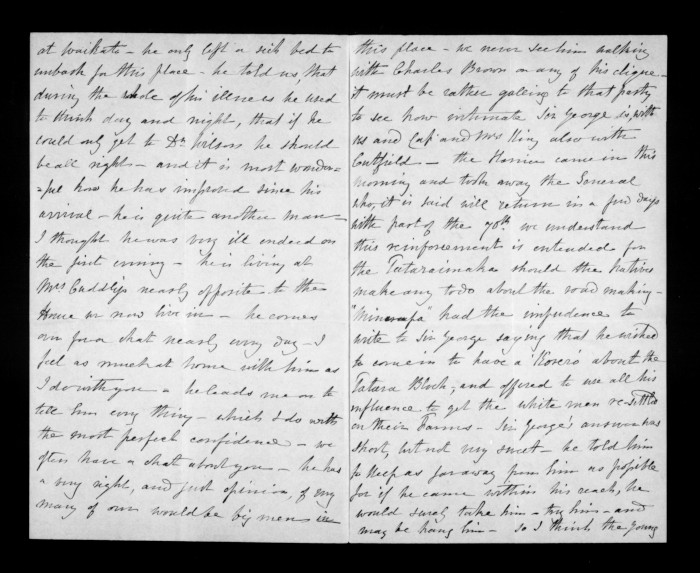 at Waikato - he only left a sick bed to
embark for this place - he told us, that
during the whole of his illness he used
to think day and night, that if he
could only get to Dr Wilsons he should
be all right - and it is most wonder-
=ful how he has improved since his
arrival - he is quite another man -
I thought he was very ill indeed on
the first evening - he is living at
Mrs Cuddlips nearly opposite to the
House we now live in - he comes
over for a chat nearly every day - I
feel as much at home with him as
I do with you - he leads me on to
tell him every thing - which I do with
the most perfect confidence - we
often have a chat about you - he has
a very right, and just opinion, of very
many of our would be big men in
this place - we never see him walking
with Charles Brown or any of his clique -
it must be rather galling to that party
to see how intimate Sir George is, with
us and Cap and Mrs King also with
Cutfield - the Harrier came in this
morning and took away the General
who, it is said will return in a few days
with part of the 70th. we understand
this reinforcement is intended for
the Tataraimaka should the Natives
make any todo about the road making -
had the impudence to
write to Sir George saying that he wished
to come in to have a "Korero" about the
Tatara Block; and offered to use all his
influence to get the white men re-settled
on their Farms - Sir George's answer was
short, but not very sweet - he told him
to keep as far away from him as possible
for if he came within his reach, he
would surely take him - try him - and
may be hang him - so I think the young